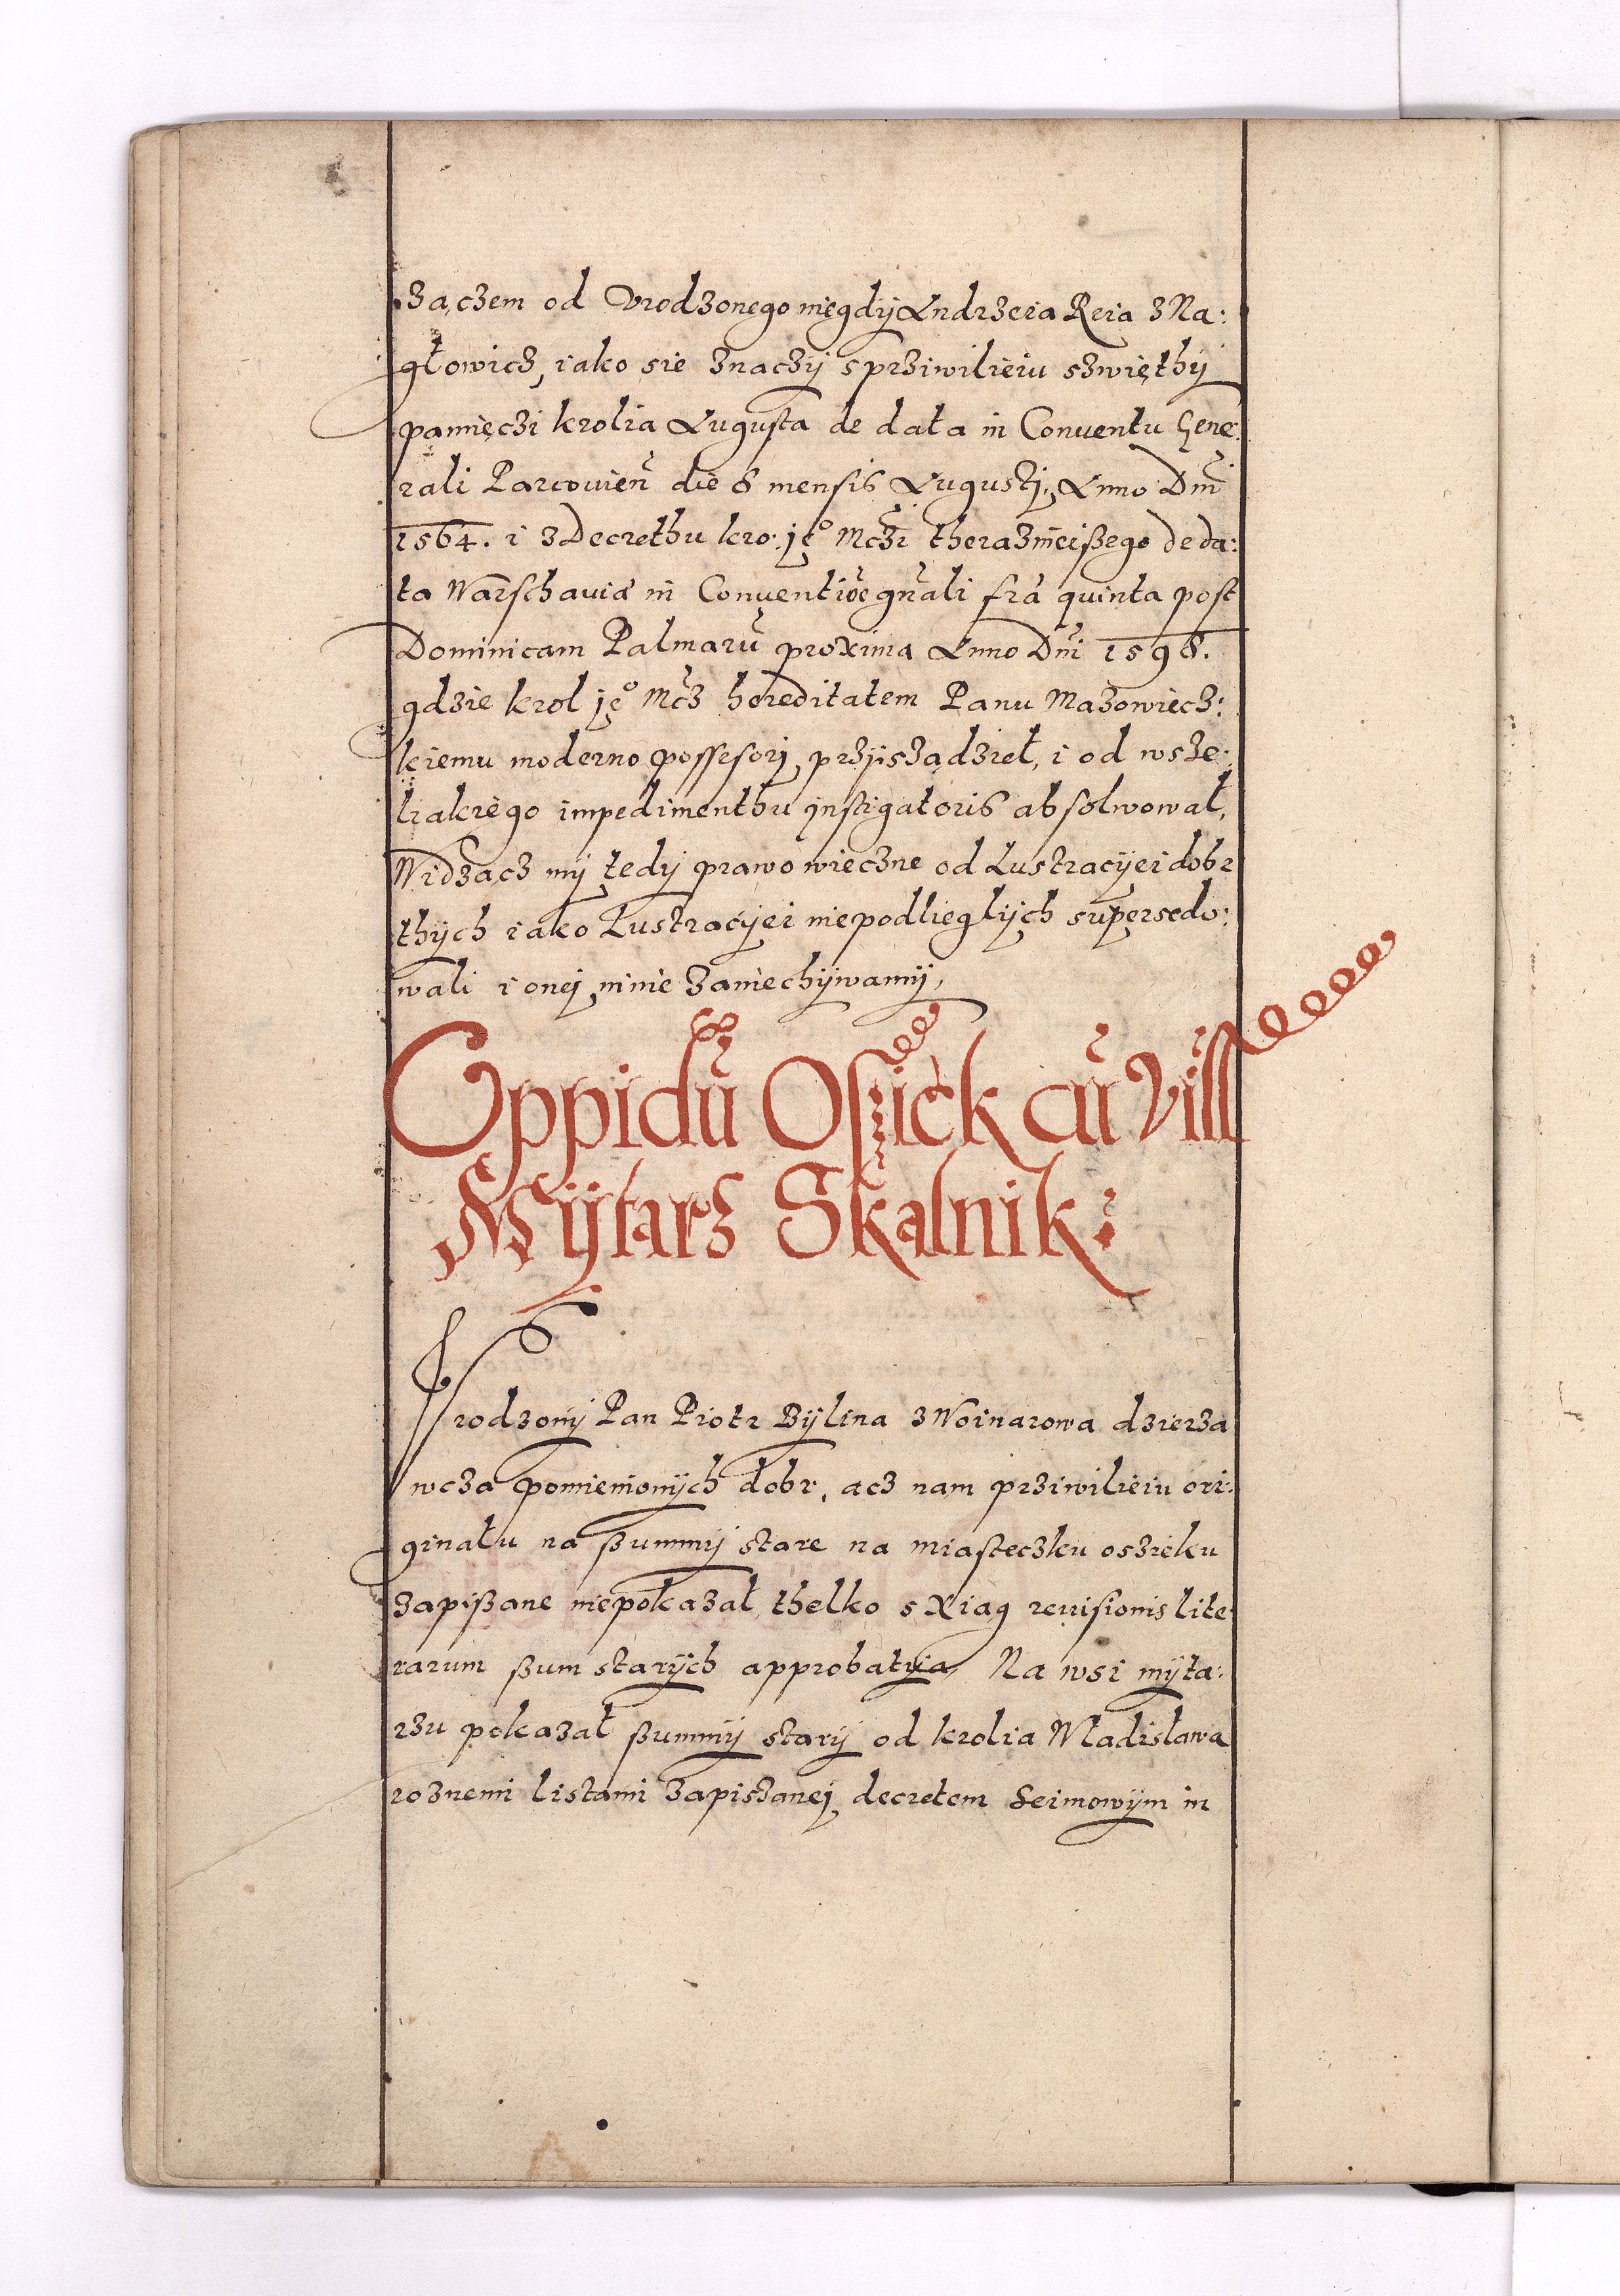 zaczem od Vrodzonego niegdÿ Andrzeia Reia z Na:
głowicz, iako sie znaczÿ s prziwilieiu szwiethÿ
pamięczi krolia Augusta de data in Conuentu Gene:
rali Parcouień die 8 mensis Augusti, Anno Dni
1564. i z Decrethu kro: je° Mczi therazmeißego de da:
ta Warschauiæ in Conuentioe gnali fra quinta post
Dominicam Palmarū proxima Anno Dni 1598.
gdzie krol je° Mcz hereditatem Panu Mazowiecz:
kiemu moderno possesori przÿsządzieł, i od wsze:
liakiego impedimenthu instigatoris absolwował,
Widzącz mÿ tedÿ prawo wieczne od Lustracÿei dobr
thÿch iako Lustracÿei niepodlieglÿch supersedo:
wali i onej ninie zaniechÿwamÿ,
Oppidū Osziek cū Vill
Mÿtarz Skalnik:
Vrodzonÿ Pan Piotr Bÿlina z Woinarowa dzierza
wcza pomienionÿch dobr, acz nam prziwilieiu ori:
ginału na ßummÿ stare na miasteczku oszieku
zapißane niepokazał, thelko s Xiag reuisionis lite
rarum ßum starÿch approbatia, Na wsi mÿta:
rzu pokazał ßummÿ starÿ od krolia Wladisława
roznemi listami zapiszanej, decretem Seimowÿm in